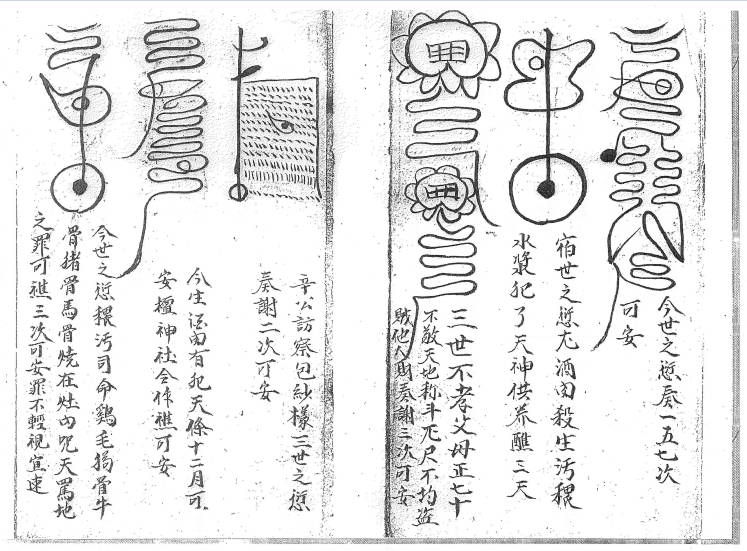 今世之愆奏一五七次
可安
宿世之愆尤酒肉殺生污穢
水漿犯了天神供养醮三天
三世不孝父母正七十
不敬天地称斗丈尺不均盗
賊他人財奏謝三次可安
辛公訪察包紗樣三世之愆
奏謝二次可安
今生酒肉有犯天條十二月可
安壇神社合作醮可安
今世之愆穢污司命鷄毛狗骨牛
骨猪骨馬骨燒在灶内咒天罵地
之罪可醮三次可安罪不輕視宜速